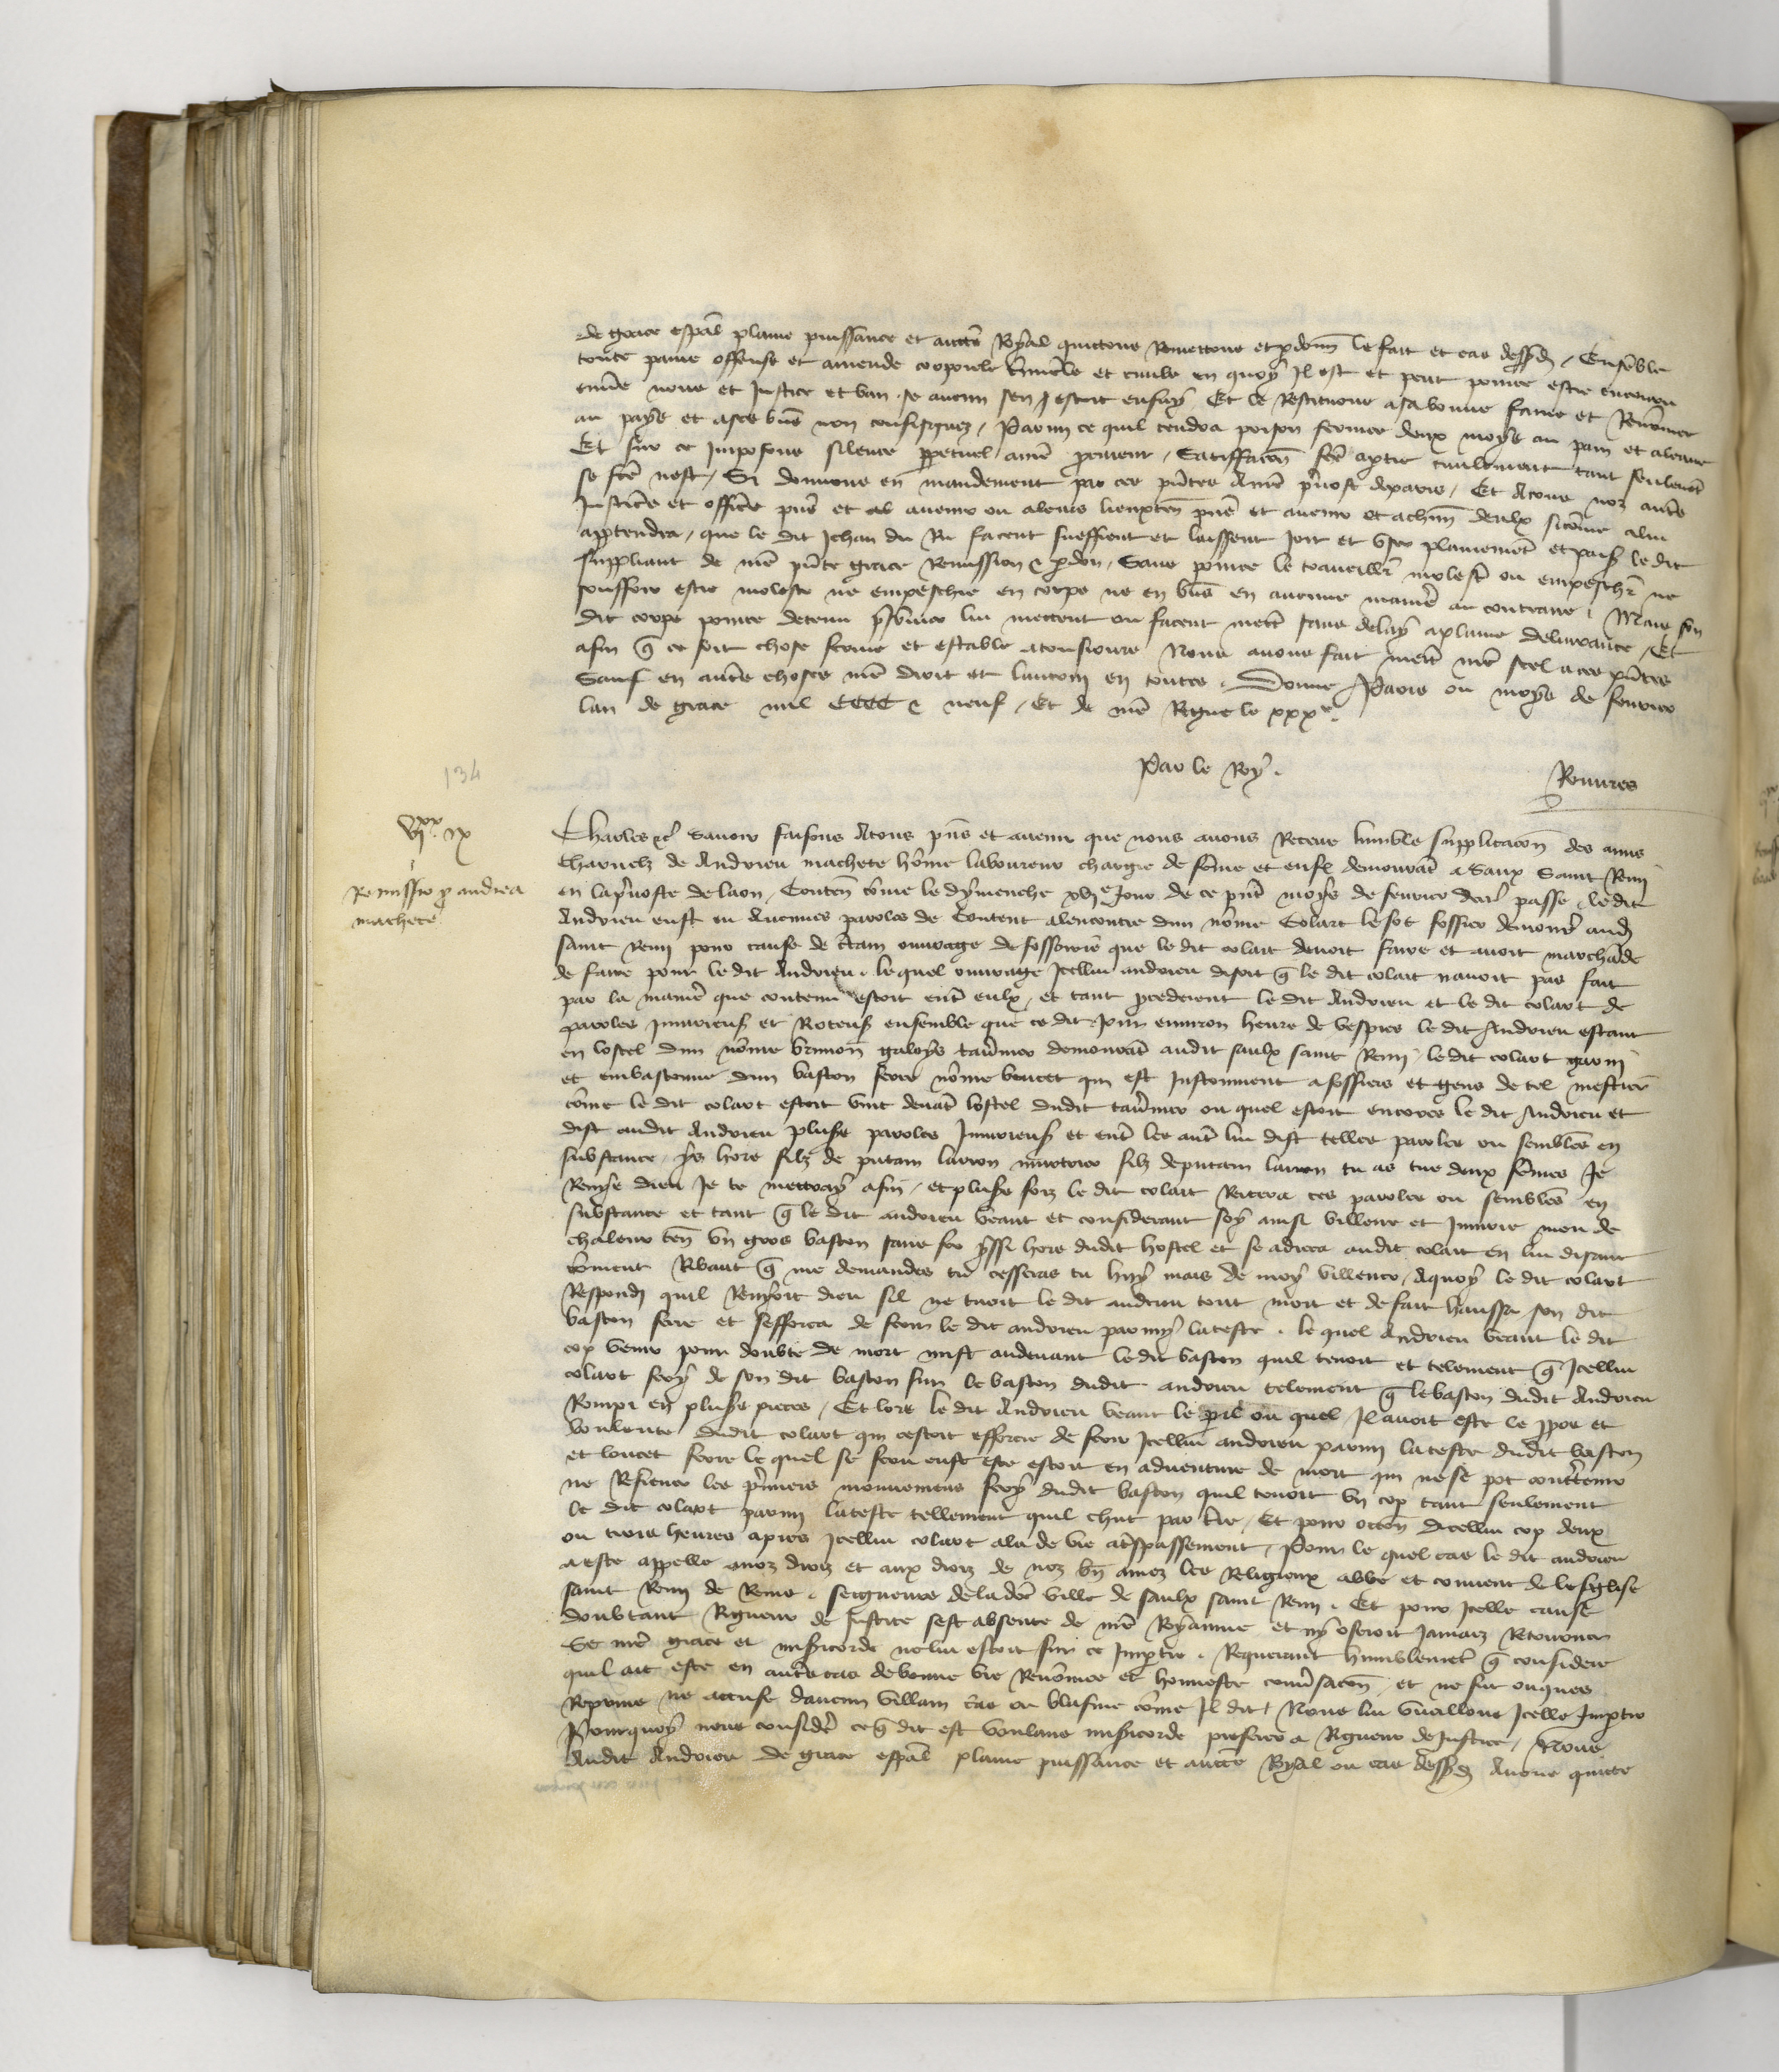 de grace espāl plaine puissance et auctē Royal quictons Remettons et pdonn̄ le fait et cas dessd / Ensēble
toute paine offense et amende corporele crimele et civile en quoy Il est et peut pource estre encouru
envers nous et Justice et ban se aucun sen estoit ensuy Et le Restituons a sa bonne fame et Renomee
au pays et a ses biēs non confisquez / Parmi ce quil tendra prison fermee deux moys au pain et aleaue
Et sur ce Imposons silence ppetuel a nrē procureur / Satiffacōn fcē aptie civilement tant seulemēt
se fcē nest / Si donnons en mandement par ces pn̄tes A nrē pvost de paris / Et A tous noz autres
Justiciers et officiers pn̄s et avenir ou a leurs lieuxten̄ pn̄s et avenir et a chūn deulx sicōme a lui
apptendra / que le dit Jehan du Ru facent sueffrent et laissent Joir et user plainemēt et paisiblement le dit
suppliant de nrē pn̄te grace Remission & pdon / Sans pource le traveillier molester ou empeschier ne
souffrir estre moleste ne empeschie en corps ne en biēs en aucune manierē au contraire / Mais son
dit corps pource detenu prisonnier lui mettent ou facent mettē sans delay a plaine delivrance / Et
afin q̄ ce soit chose ferme et estable a tousiours Nous avons fait mettē nrē seel a ces pn̄tes
Sauf en autrēs choses nrē droit et lautrui en toutes . Donne A Paris ou moys de fevrier
lan de grace mil CCCC & neuf / Et de nrē Regne le xxxe.
Par le Roy .
Rouvres
134
VIxx IX
Remissio p andrea
machete
Charles &c̄ Savoir faisons A tous pn̄s et avenir que nous avons Receue humble supplicacōn des amis
charnelz de Andrieu machete hōme laboureur chargie de fēme et enfs demourāt a Saux Saint Remi
en la pvoste de laon / Contenant cōme le dymenche xvje Jour de ce pn̄t moys de fevrier derr̄ passe / le dit
Andrieu eust eu Aucunes paroles de Content alencontre dun nōme Colart le sot fossier demourāt aud
saint Remi pour cause de c̄tain ouvrage de fossoierie que le dit colart devoit faire et avoit marchāde
de faire pour le dit Andrieu . le quel ouvrage Icellui andrieu disoit q̄ le dit colart navoit pas fait
par la manierē que contenu estoit entr̄ eulx / et tant procederent le dit Andrieu et le dit colart de
paroles Iniurieuses et Roteuses ensemble que ce dit Jour environ heure de vespres le dit Andrieu estant
en lostel dun nōme galoys tav̄nier demourāt audit saulx saint Remi / le dit colart garni
et embastonne dun baston ferre nōme loucet qui est Instrument a fossiers et gens de tel mestier
cōme le dit colart estoit vint devāt lostel dudit tav̄nier ou quel estoit encores le dit Andrieu et
dist audit Andrieu plusrs paroles Iniurieuses et entr̄ les autr̄ lui dist telles paroles ou semblēs en
substance / ys hors filz de putain larron murtrier filz de putain larron tu as tue deux fēmes Je
Renye dieu Je te mettray a fin / et plusrs foiz le dit colart Reitera ces paroles ou semblēs en
substance et tant q̄ le dit andrieu veant et considerant soy ainsi villene et Iniurie meu de
chaleur tenāt un gros baston sans fer yssi hors dudit hostel et se adreca audit colart en lui disant
cōment Ribaut q̄ me demandes tu cesseras tu huy mais de moy villener / A quoy le dit colart
Respondi quil Renyoit dieu sil ne tuoit le dit andrieu tout mort et de fait haussa son dit
baston ferre et sefforca de ferir le dit andrieu parmy la teste . le quel Andrieu veant le dit
cop venir pour doubte de mort mist audevant le dit baston quil tenoit et telement q̄ Icellui
colart fery de son dit baston sur le baston dudit andrieu telement q̄ le baston dudit Andrieu
Rompi en plusrs pieces / Et lors le dit Andrieu veant le peril ou quel Il avoit este le ppos et
voulente dudit colart qui cestoit efforcie de ferir Icellui andrieu parmi la teste dudit baston
et loucet ferre le quel se feru eust este estoit en adventure de mort qui ne se pot contr̄tenir
ne Refrener les pmiers mouvemens fery dudit baston quil tenoit un cop tant seulement
le dit colart parmi la teste tellement quil chut par t̄re / Et pour occōn dicellui cop deux
ou trois heures apres Icellui colart ala de vie a trespassement / Pour le quel cas le dit andrieu
a este appelle a noz droiz et aux droiz de noz bn̄ amez les Religieux abbe et couvent de leglise
saint Remi de Reins . seigneurs de la dcē ville de saulx saint Remi . Et pour Icelle cause
doubtant Rigueur de Justice sest absente de nrē Royaume et ny oseroit Jamaiz Retourner
Se nrē grace et misericorde ne lui estoit sur ce Impartie . Requerant humblemēt q̄ considere
quil ait este en autrēs cas de bonne vie Renomee et honneste convsacōn / et ne fut onques
Reprins ne accuse daucun villain cas ou blasme cōme Il dit / Nous lui vueillons Icelle Impartir
Pourquoy nous considerē ce q̄ dit est voulans misericorde preferer a Rigueur de Justice / Nous
Audit Andrieu de grace espāl plaine puissance et auctē Royal ou cas dessd Avons quicte